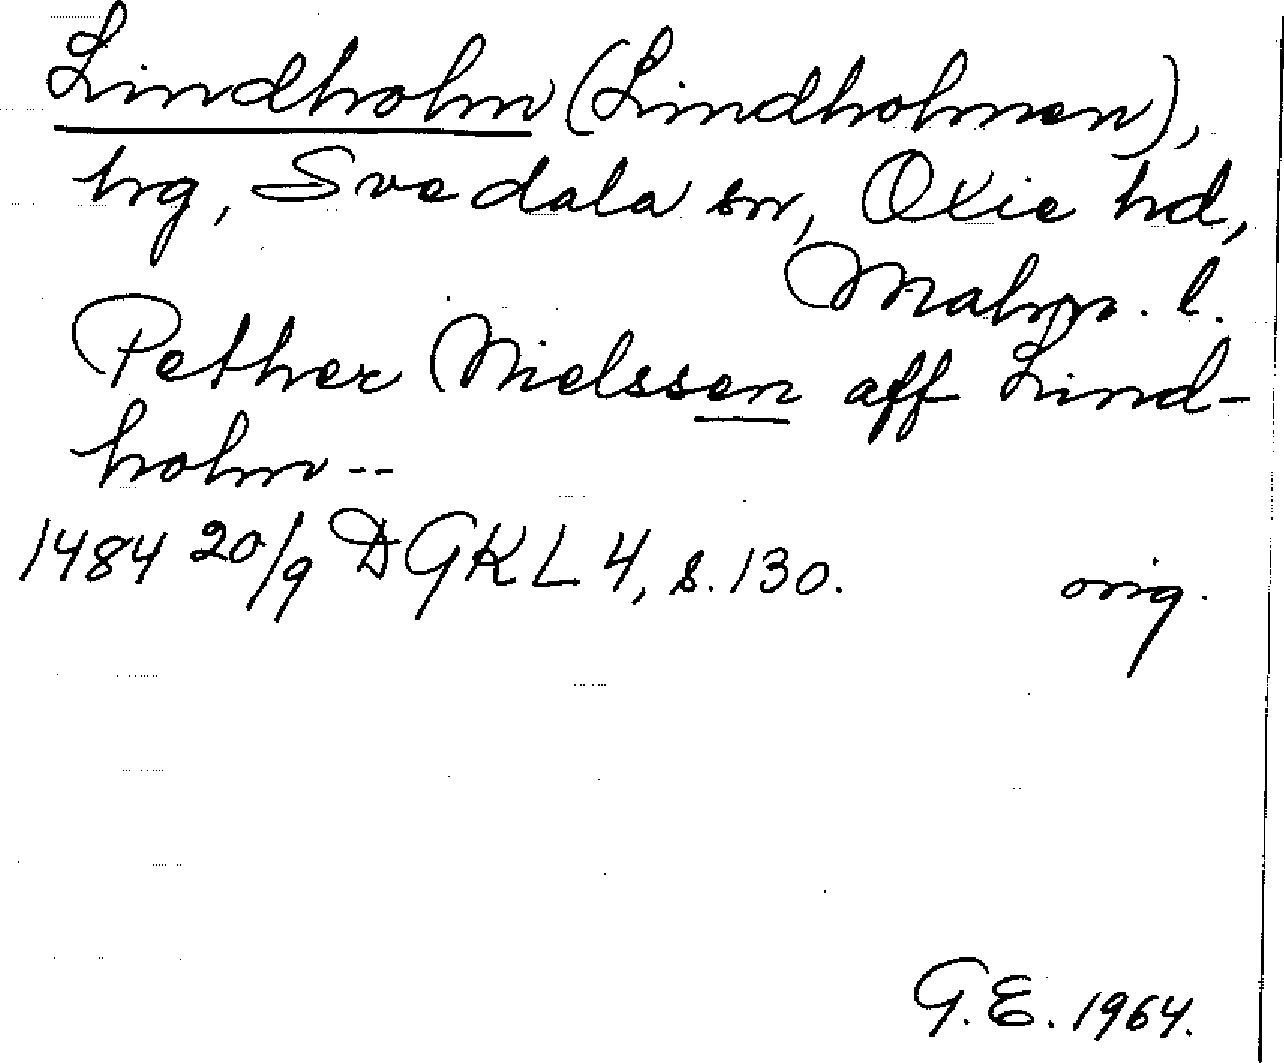 Lindholm (Lindholmen),
hg, Svedala sn, Oxie hd,
Malm. l.
Pether Nielssen aff Lind-
holm --
1484 20/9 DGKL 4, s. 130. orig.
G.E. 1964.